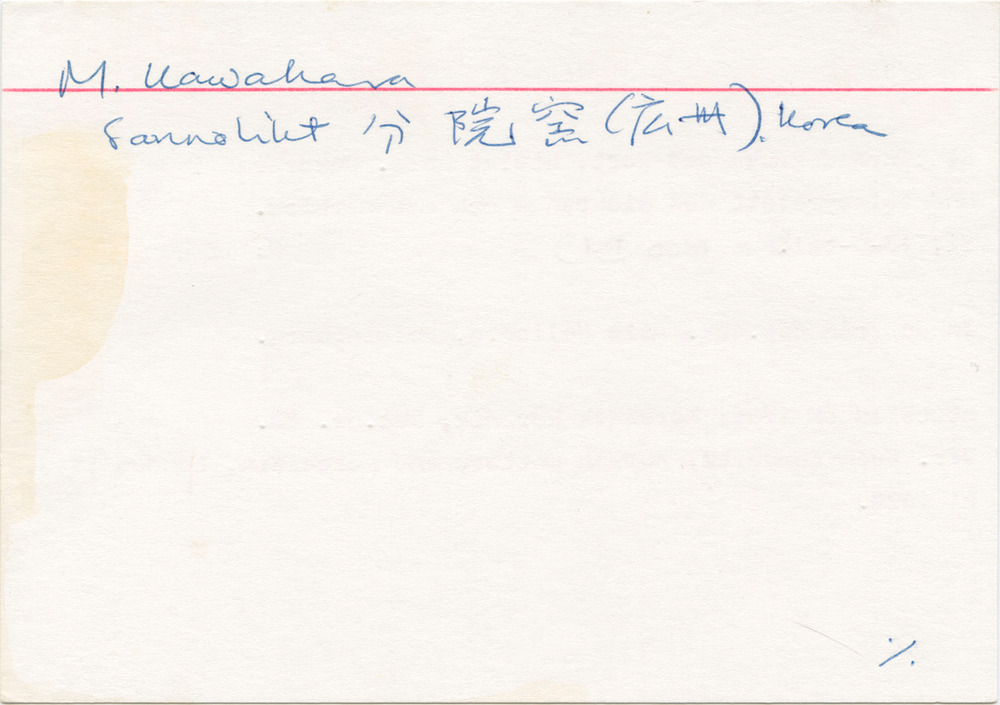 M. Kawahara
sannolikt 分院窯(広州). Korea
./.